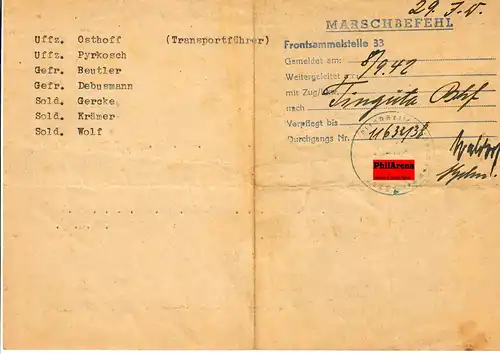 29. J.D.
MARSCHBEFEHL
Uffz. Osthoff (Transportführer)
Uffz. Pyrkosch
Gefr. Beutler
Gefr. Debusmann
Sold. Gercke
Sold. Krämer
Sold. Wolf
Frontsammelstelle 33
Gemeldet am: 8/9.42
Weitergeleitet
mit Zug
nach Tinguta Bhf
Verpflegt bis
Durchgangs Nr. 11632/38
PhilArena